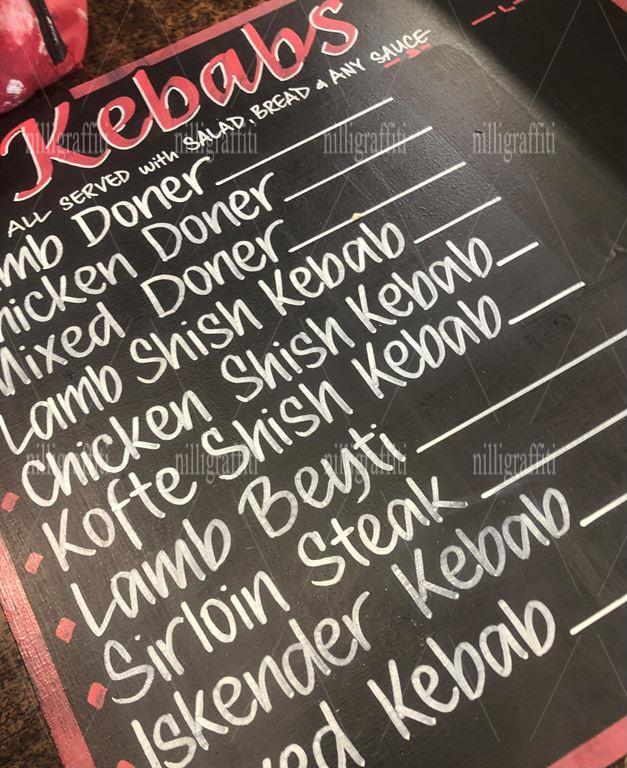 Kebabs
ALL SERVED with SALAD, BREAD & ANY SAUCE
Lamb Doner
Chicken Doner
Mixed Doner
Lamb Shish Kebab
Chicken Shish Kebab
Kofte Shish Kebab
Lamb Beyti
Sirloin Steak
Iskender Kebab
Kebab
nilligraffiti nilligraffiti nilligraffiti nilligraffiti
nilligraffiti nilligraffiti nilligraffiti nilligraffiti